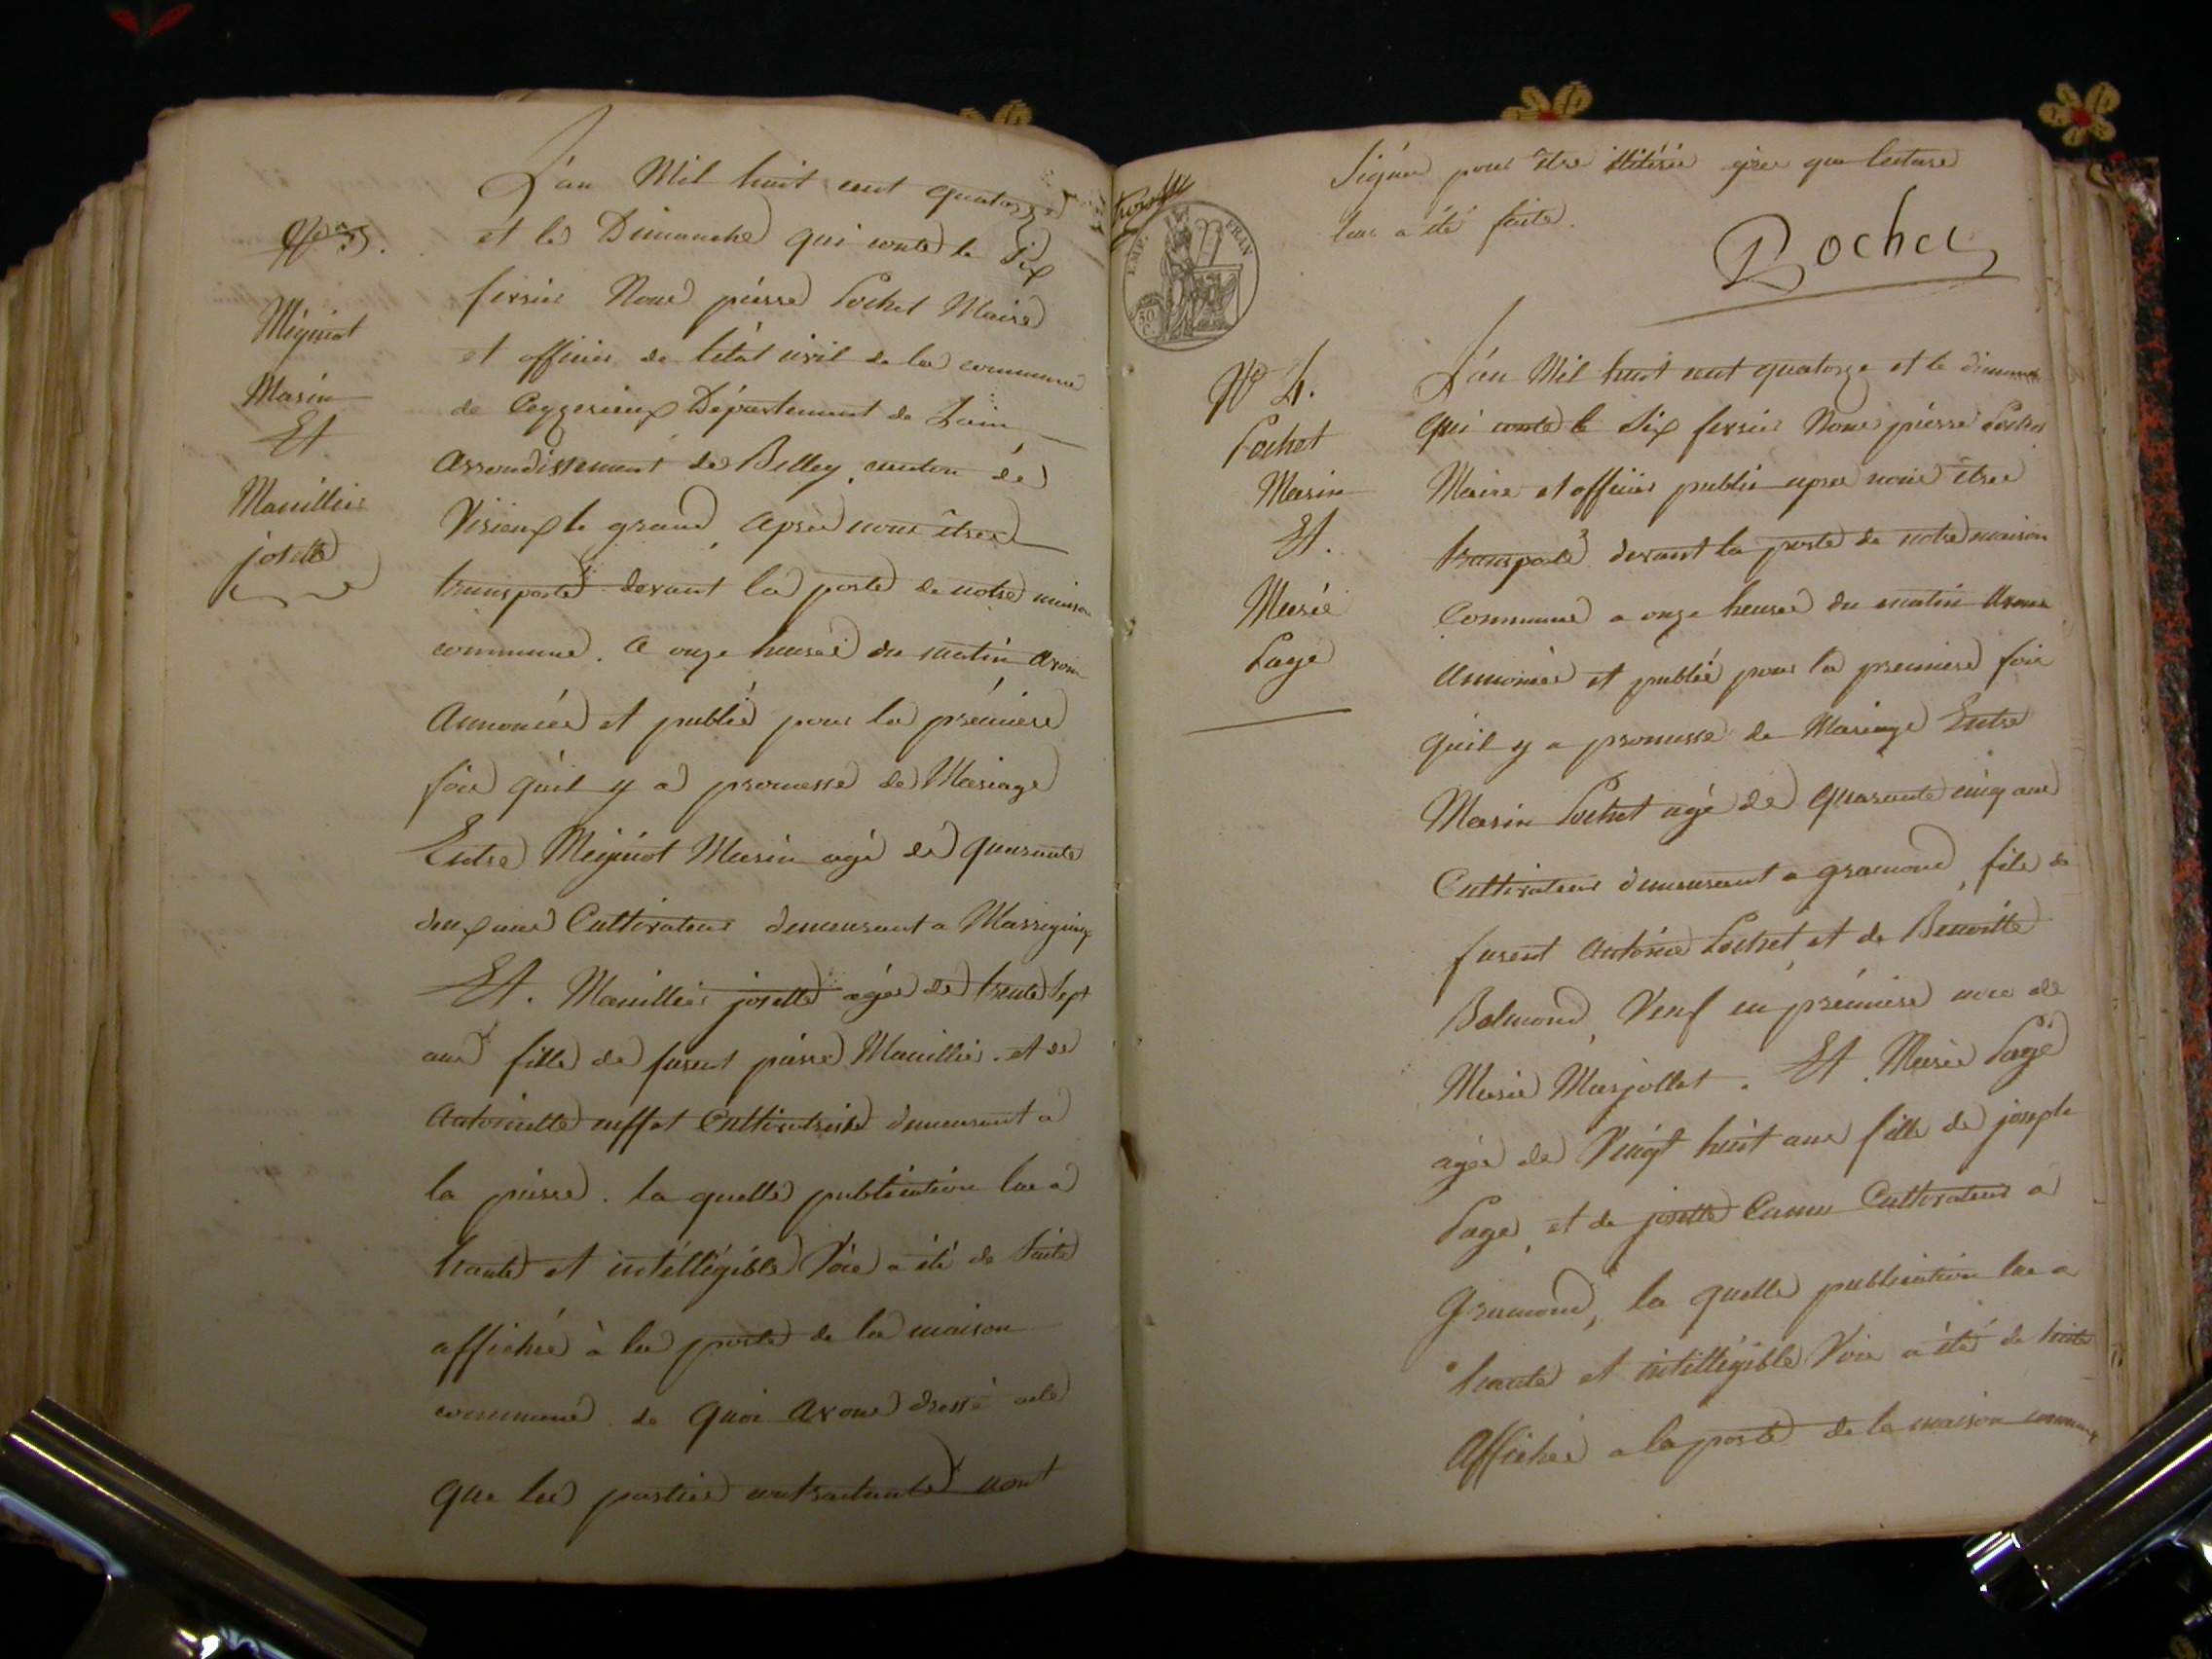 L'an Mil huit cent quatorze
et le Dimanche qui conte le Six
fevrier Nous pierre Pochet Maire
et officier de letât civil de la commune
de Ceyzerieux Département de Lain
Arrondissement de Belley, canton de
Virieux le grand, après nous être
transporté devant la porte de notre maison
commune. A onze heures du matin avons
Annoncée et publié pour la première
fois qu'il y a promesse de Mariage
Entre Migniot Marin agé de quarante
deux ans Cultivateur demeurant a
Et. Manillier josette agée de trente Sept
ans fille de furent pierre Manillier et de
Antoinette cuffet Cultivatrice demeurant a
la pierre. la quelle publication lue a
haute et intélligible Voie a été de Suite
affichée à la porte de la maison
commune de quoi avons dressé acte
que les parties contractantes nont
No 3.
Migniot
Marin
Et
Manillier
josette
Signé pour être illitérée que lecture
lui a été faite.
Pochet
EMP. FRAN
50
C.
No 4.
Pochet
Marin
Et.
Marie
Page
L'an Mil huit cent quatorze et le dimanche
qui conte le Six fevrier Nous pierre Pochet
Maire et officier public apres nous être
transporté devant la porte de notre maison
Commune a onze heures du matin Avons
Annoncée et publié pour la premiere fois
quil y a promesse de Mariage Entre
Marin Pochet agé de quarante cinq ans
Cultivateur demeurant a gramond, fils de
furent Antoine Pochet, et de Benoitte
Balmond, Veuf en première noce de
Marie Marjollet. Et Marie Page
agée de Vingt huit ans fille de joseph
Page, et de josette Camu Cultivateur a
Gramond, la quelle publication lue a
haute et intélligible Voie a été de Suite
Affichée a la porte de la maison commune